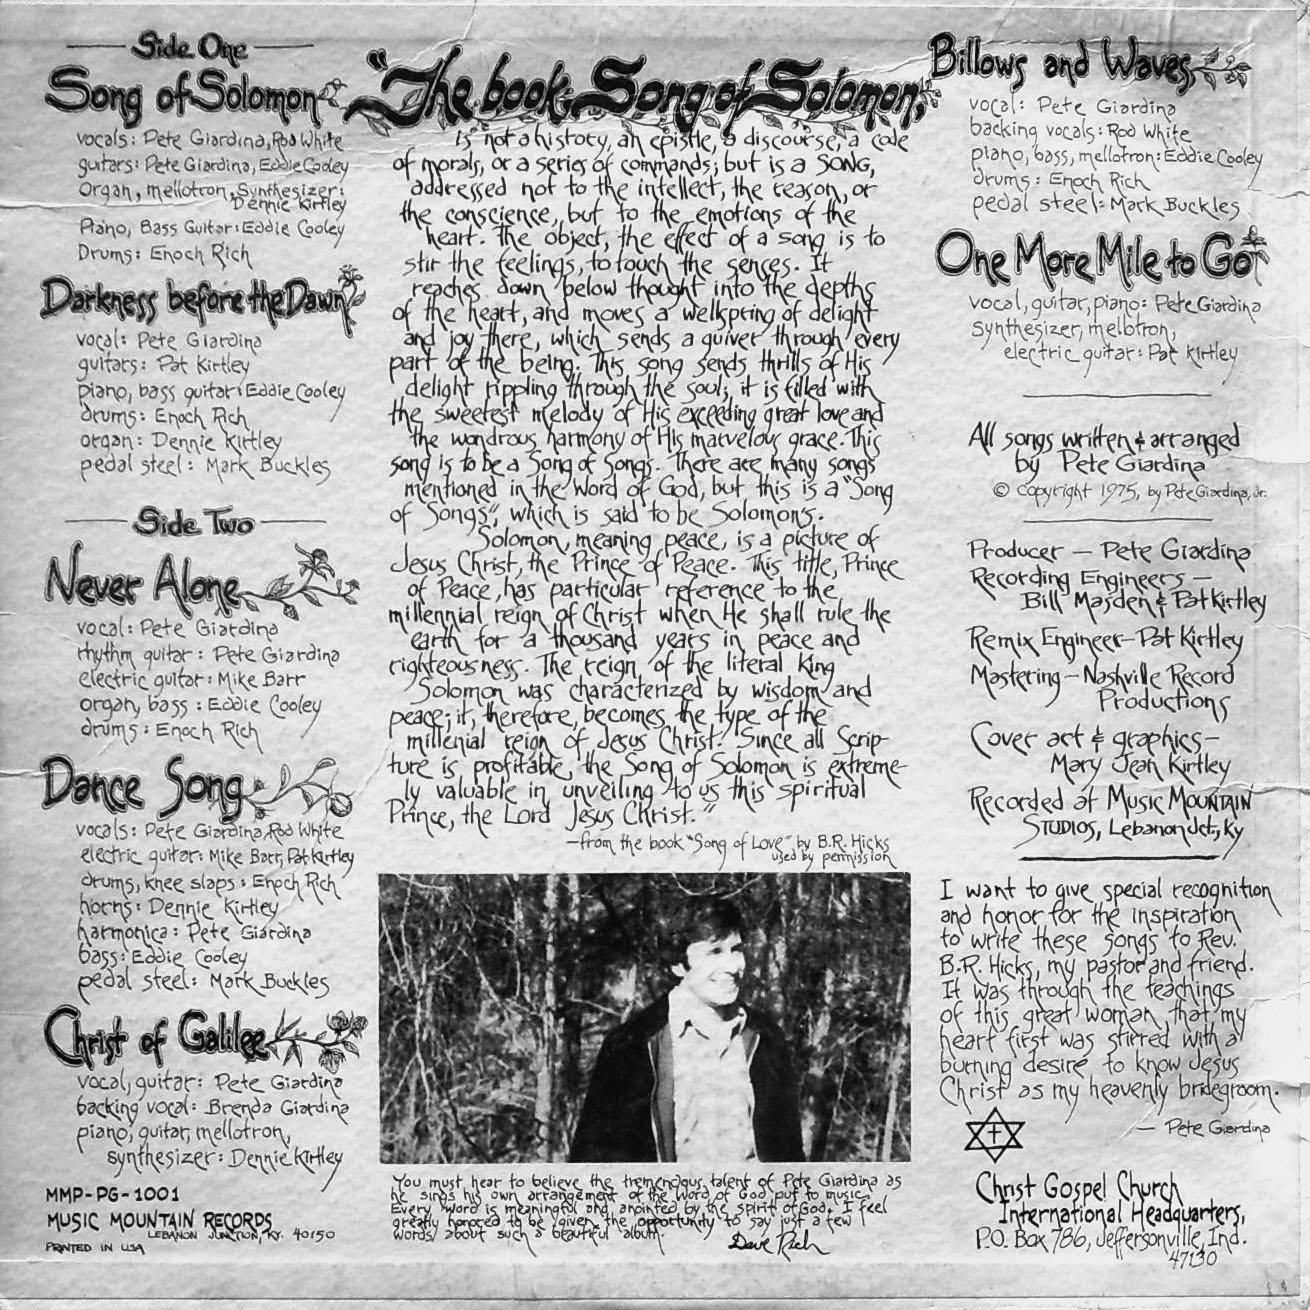 Side One
Song of Solomon
vocals: Pete Giardina, Rod White
guitars: Pete Giardina, Eddie Cooley
Organ, mellotron, Synthesizer:
Dennie Kirtley
Piano, Bass Guitar: Eddie Cooley
Drums: Enoch Rich
Darkness before the Dawn
vocal: Pete Giardina
guitars: Pat Kirtley
piano, bass guitar: Eddie Cooley
drums: Enoch Rich
organ: Dennie Kirtley
pedal steel: Mark Buckles
Side Two
Never Alone
vocal: Pete Giardina
rhythm guitar: Pete Giardina
electric guitar: Mike Barr
organ, bass: Eddie Cooley
drums: Enoch Rich
Dance Song
vocals: Pete Giardina, Rod White
electric guitar: Mike Barr, Pat Kirtley
drums, knee slaps: Enoch Rich
horns: Dennie Kirtley
harmonica: Pete Giardina
bass: Eddie Cooley
pedal steel: Mark Buckles
Christ of Galilee
vocal, guitar: Pete Giardina
backing vocal: Brenda Giardina
piano, guitar, mellotron,
synthesizer: Dennie Kirtley
MMP-PG-1001
MUSIC MOUNTAIN RECORDS
LEBANON JUNCTION, KY. 40150
PRINTED IN USA
"The book: Song of Solomon,
is not a history, an epistle, a discourse, a code
of morals, or a series of commands; but is a SONG,
addressed not to the intellect, the reason, or
the conscience, but to the emotions of the
heart. The object, the effect of a song is to
stir the feelings, to touch the senses. It
reaches down below thought into the depths
of the heart, and moves a wellspring of delight
and joy there, which sends a quiver through every
part of the being. This song sends thrills of His
delight rippling through the soul; it is filled with
the sweetest melody of His exceeding great love and
the wondrous harmony of His marvelous grace. This
song is to be a Song of Songs. There are many songs
mentioned in the Word of God, but this is a "Song
of Songs", which is said to be Solomon's.
Solomon, meaning peace, is a picture of
Jesus Christ, the Prince of Peace. This title, Prince
of Peace, has particular reference to the
millennial reign of Christ when He shall rule the
earth for a thousand years in peace and
righteousness. The reign of the literal King
Solomon was characterized by wisdom and
peace; it, therefore, becomes the type of the
millenial reign of Jesus Christ. Since all Scrip-
ture is profitable, the Song of Solomon is extreme-
ly valuable in unveiling to us this spiritual
Prince, the Lord Jesus Christ."
—from the book "Song of Love" by B.R. Hicks
used by permission
You must hear to believe the tremendous talent of Pete Giardina as
he sings his own arrangement of the Word of God put to music.
Every word is meaningful and anointed by the spirit of God. I feel
greatly honored to be given the opportunity to say just a few
words about such a beautiful album.
Dave Rich
Billows and Waves
vocal: Pete Giardina
backing vocals: Rod White
piano, bass, mellotron: Eddie Cooley
drums: Enoch Rich
pedal steel: Mark Buckles
One More Mile to Go
vocal, guitar, piano: Pete Giardina
synthesizer, mellotron,
electric guitar: Pat Kirtley
All songs written & arranged
by Pete Giardina
© Copyright 1975, by Pete Giardina, Jr.
Producer — Pete Giardina
Recording Engineers —
Bill Masden & Pat Kirtley
Remix Engineer—Pat Kirtley
Mastering — Nashville Record
Productions
Cover art & graphics—
Mary Jean Kirtley
Recorded at MUSIC MOUNTAIN
STUDIOS, Lebanon Jct., Ky
I want to give special recognition
and honor for the inspiration
to write these songs to Rev.
B.R. Hicks, my pastor and friend.
It was through the teachings
of this great woman that my
heart first was stirred with a
burning desire to know Jesus
Christ as my heavenly bridegroom.
— Pete Giardina
Christ Gospel Church
International Headquarters,
P.O. Box 786, Jeffersonville, Ind.
47130